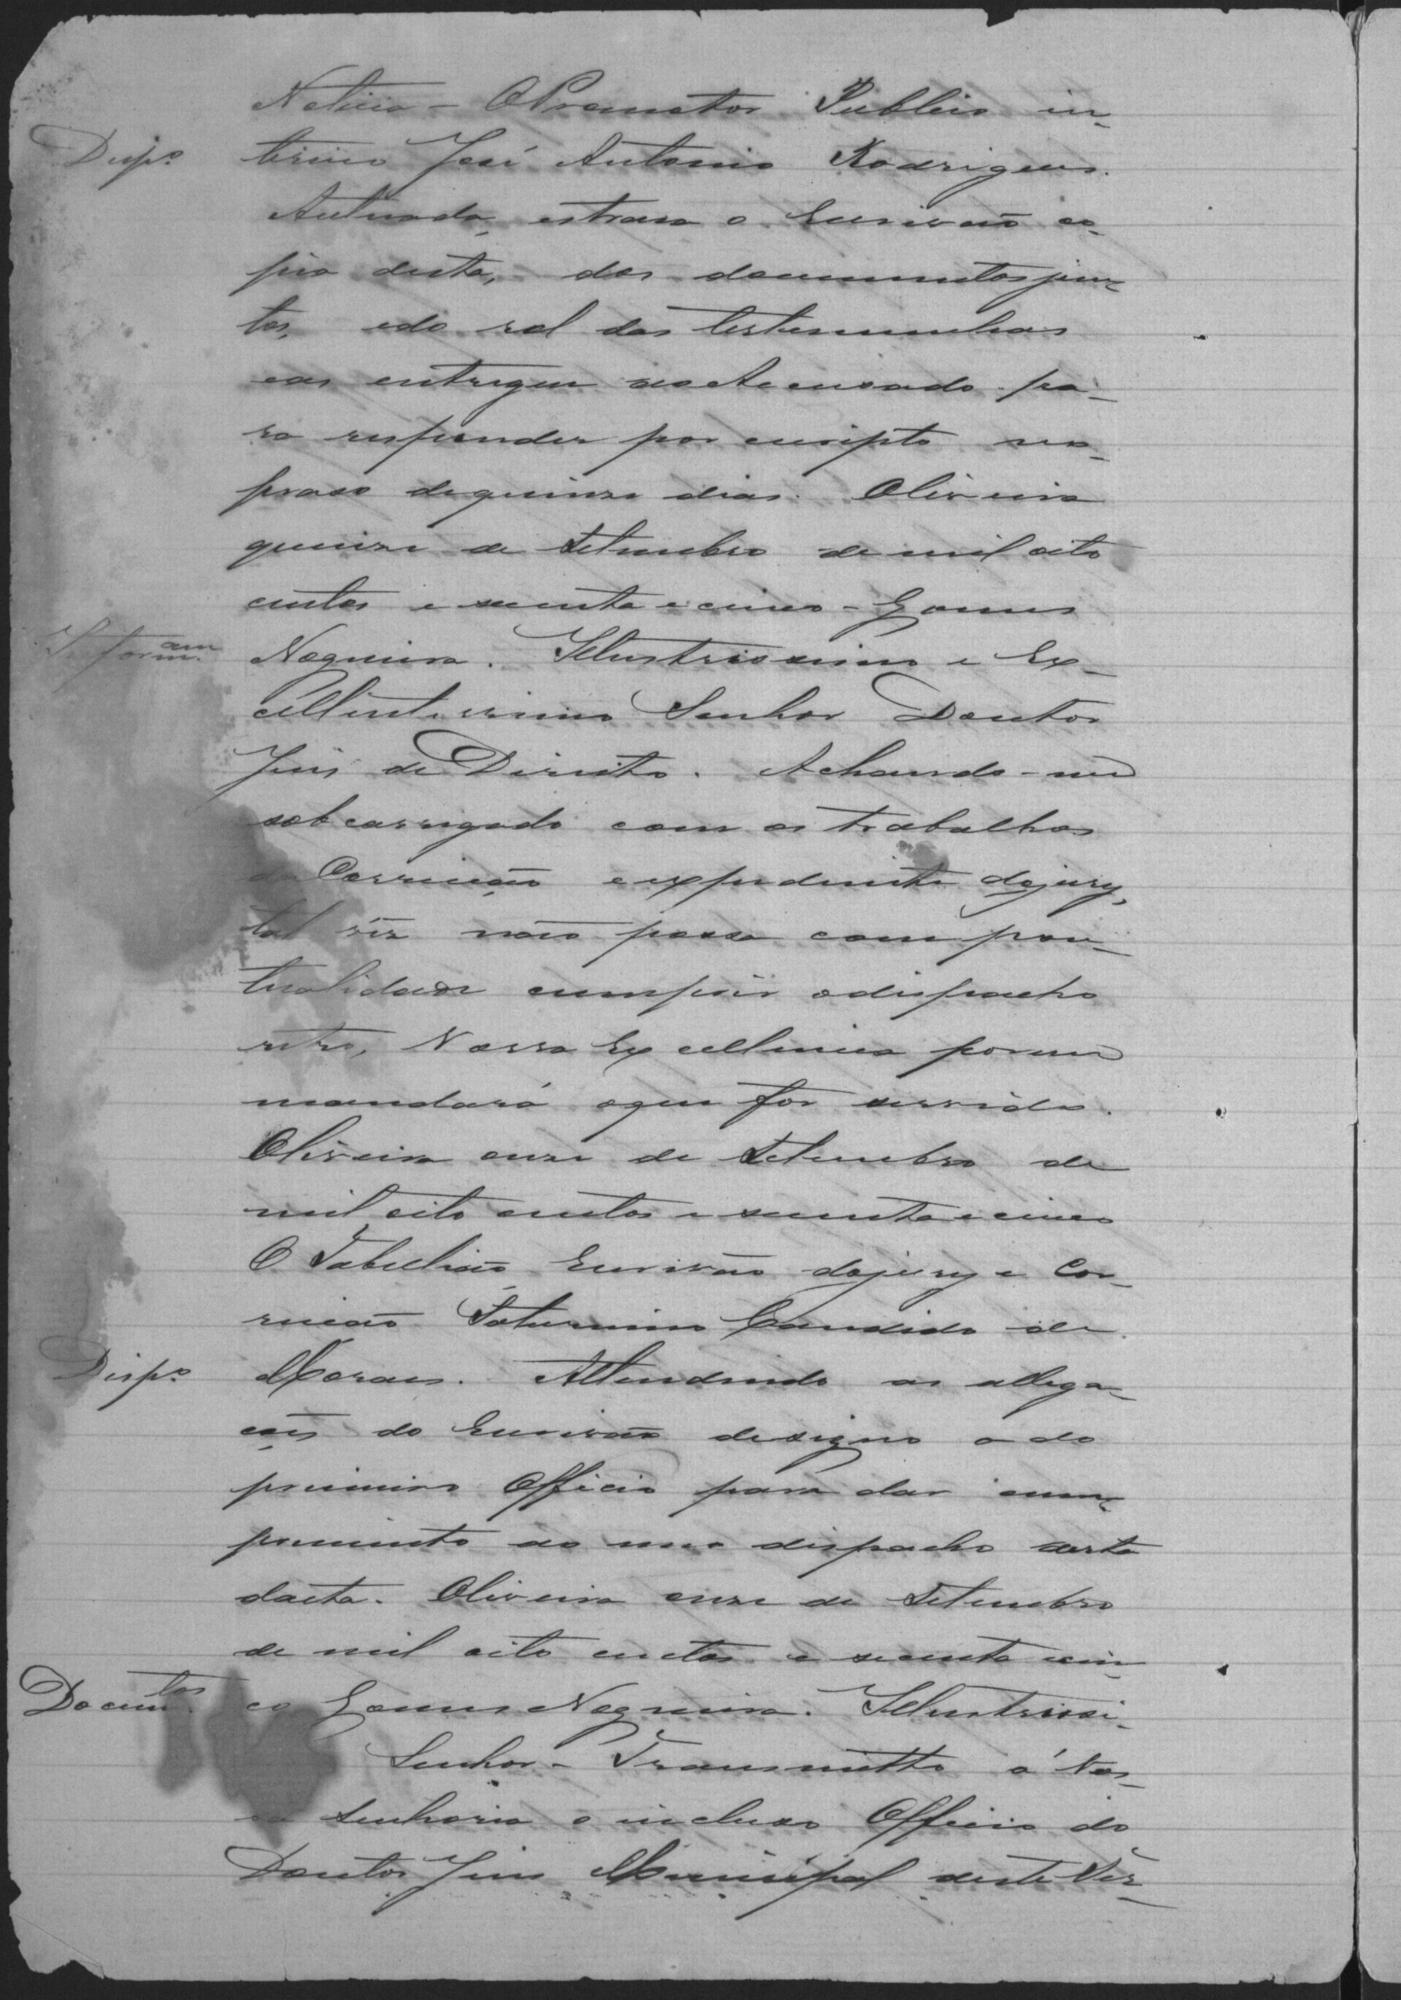 Noticia - O Promotor Publico in-
Desp.º
terino José Antonio Rodrigues.
Autuada, estraia o Escrivão co-
pia desta, dos documentos jun-
tos, edo rol das testemunhas
eas entregue ao Accusado pa-
ra responder por escripto no
praso dequinze dias. Oliveira
quinze de Setembro de mil oito
centos e secenta e cinco - Gomes
Informam.
Nogueira. Illustrissimo e Ex-
cellentissimo Senhor Doutor
Juis de Direito. Achando-me
sobcarregado com os trabalhos
da Correição e expediente dojury,
tal vez não possa com pon-
tualidade cumprir odespacho
retro, Vossa Excellencia porem
mandará oque for servido.
Oliveira onze de Setembro de
mil oito centos e secenta e cinco
O Tabellião Escrivão dojury e Cor-
reição Saturnino Candido de
Desp.º
Moraes. Attendendo as allega-
ções do Escrivão designo o do
primeiro Officio para dar cum-
primento ao meo despacho desta
dacta. Oliveira onze de Setembro
de mil oito centos e secenta ecin-
Docum.tos
co Gomes Nogueira. Illustrissi-
Senhor - Transmitto á Vos-
sa Senhoria o incluso Officio do
Doutor Juis Municipal deste Ter-